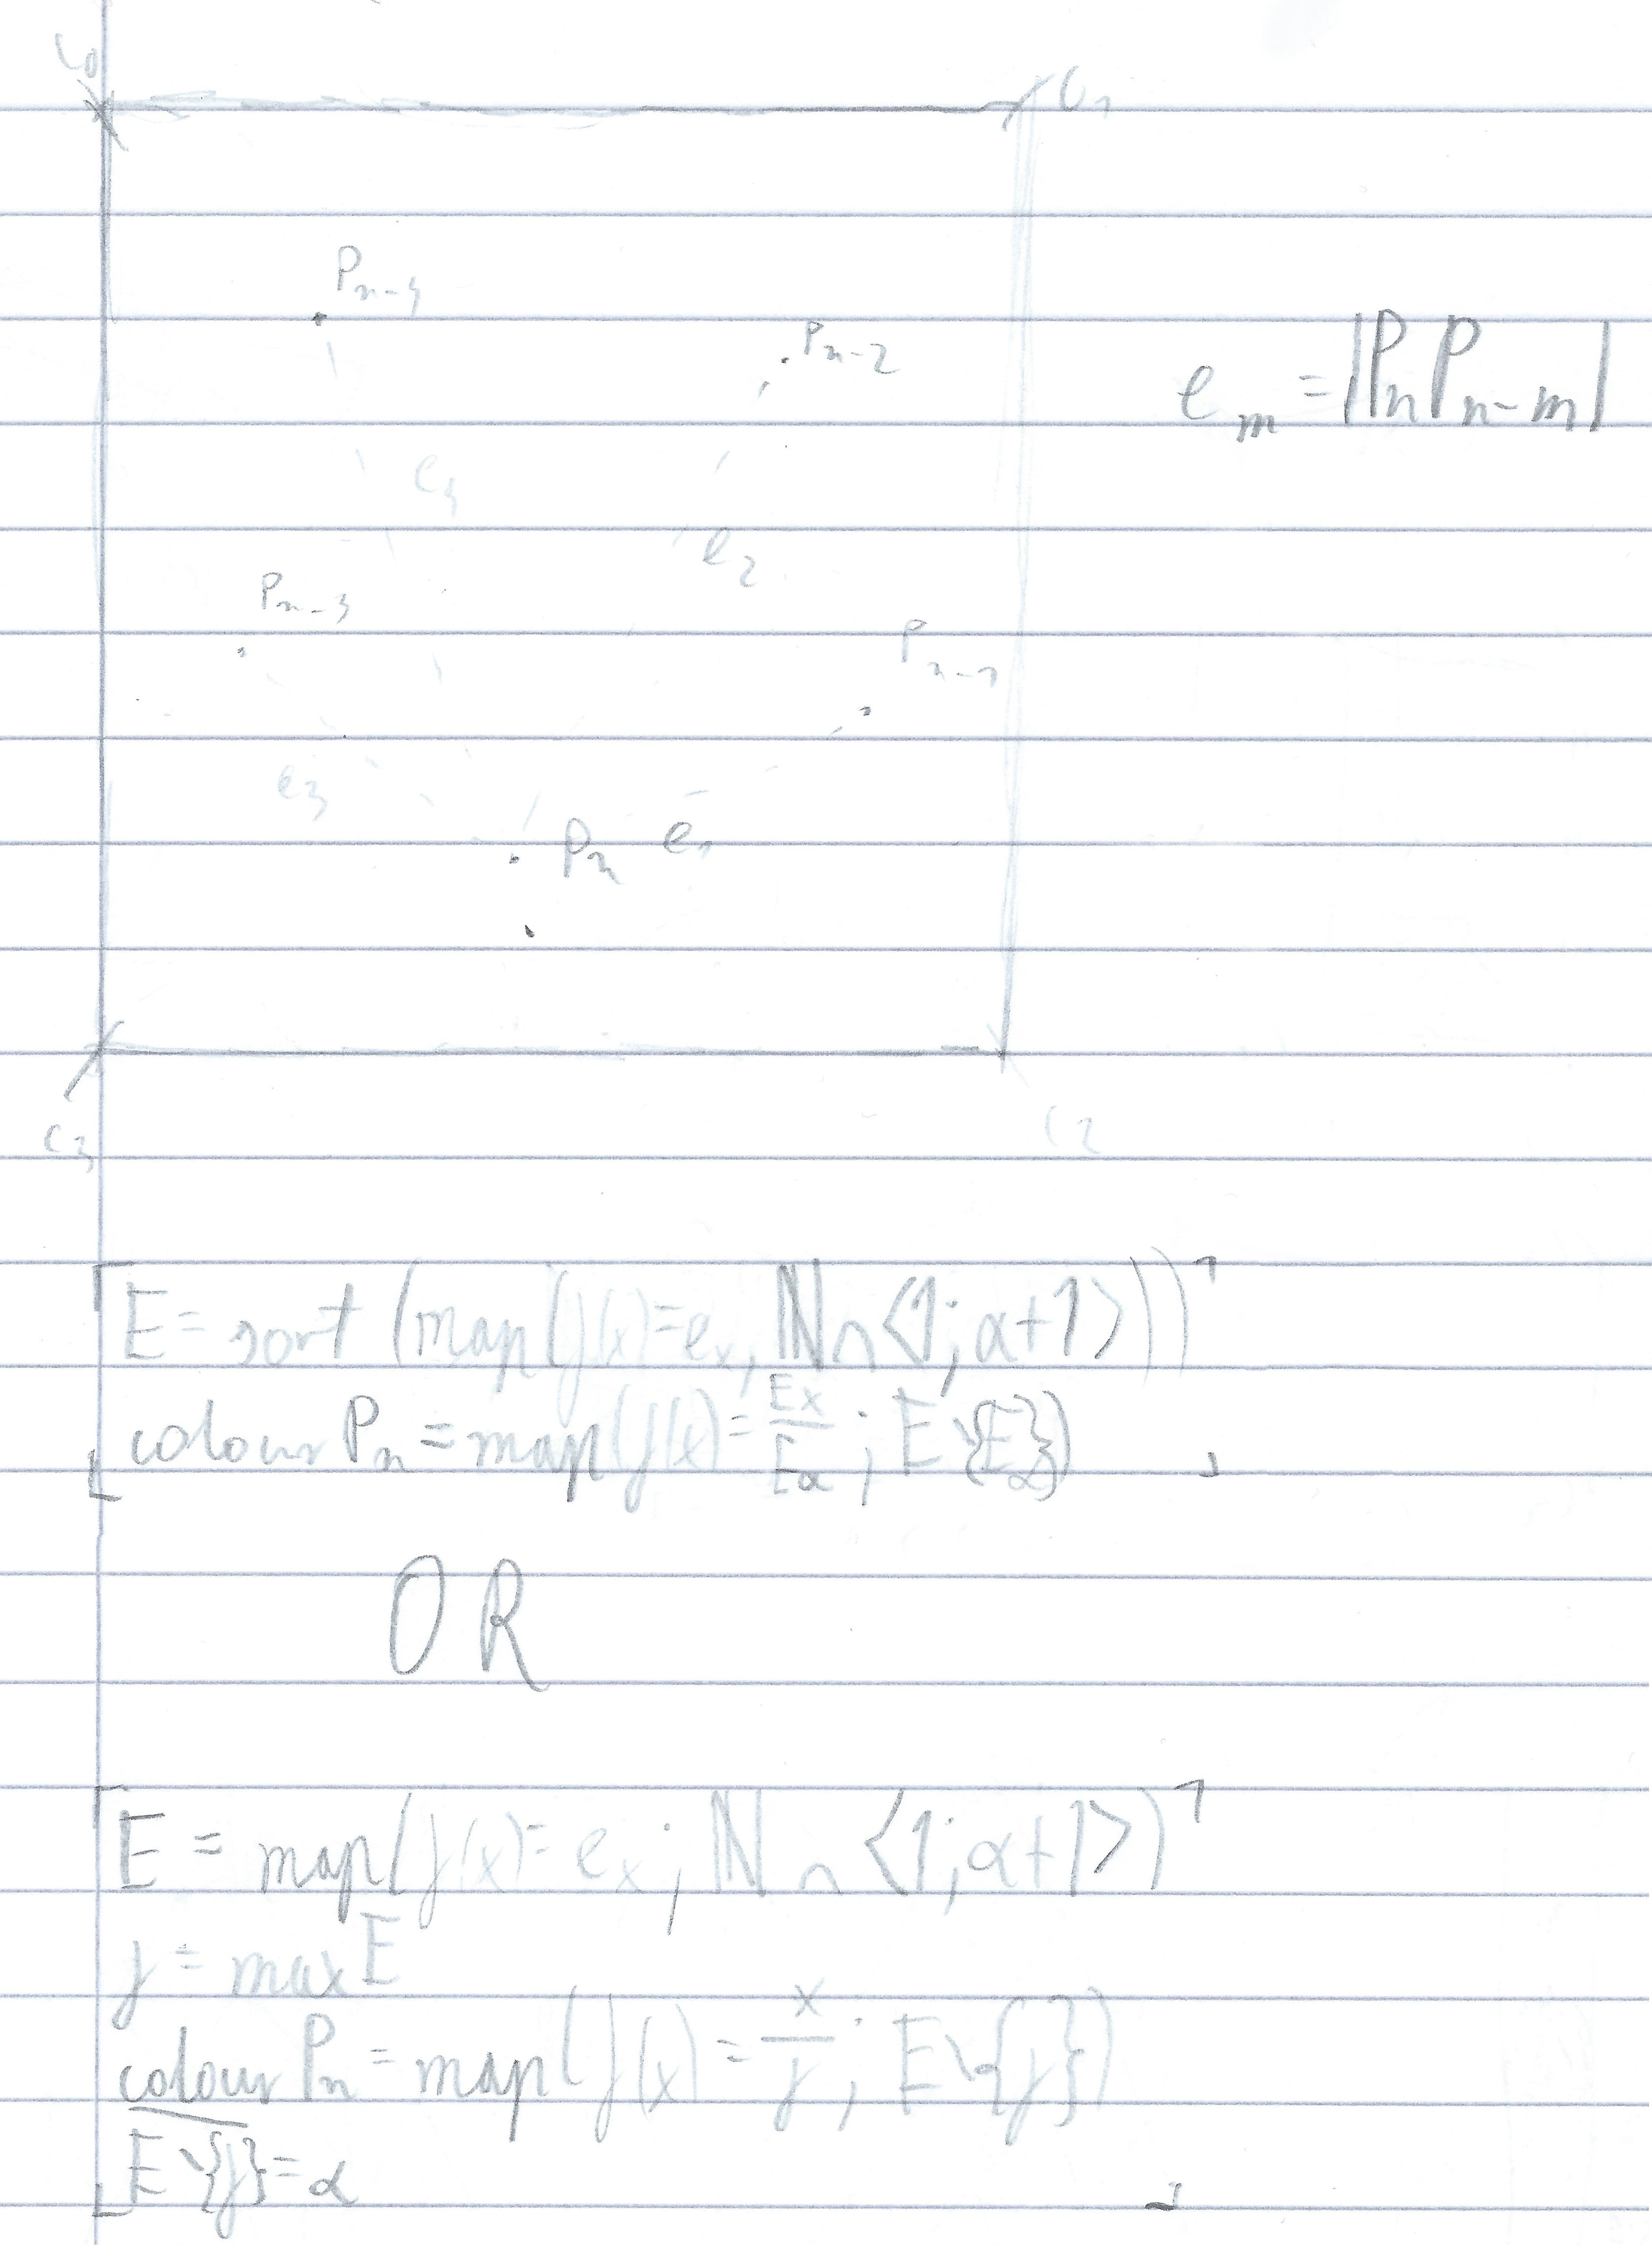 C₀
C₁
Pₙ₋₄
Pₙ₋₂
eₘ = |PₙPₙ₋ₘ|
e₄
e₂
Pₙ₋₃
Pₙ₋₁
e₃
Pₙ e₁
C₃
C₂
E = sort (map(f(x)=eₓ; ℕ∩⟨1;α+1⟩))
colour Pₙ = map(f(x)=Eₓ/Eα; E\{Eα})
OR
E = map(f(x)=eₓ; ℕ∩⟨1;α+1⟩)
j = max E
colour Pₙ = map(f(x)=x/j; E\{j})
E\{j}=α